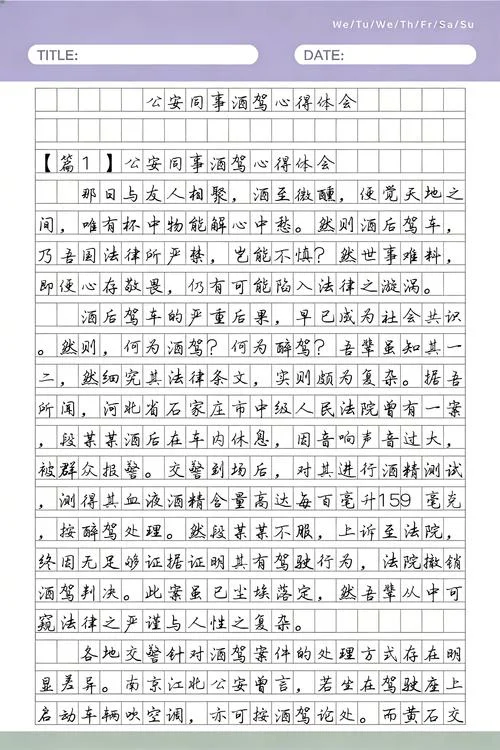 We/Tu/We/Th/Fr/Sa/Su
TITLE:
DATE:
公安同事酒驾心得体会
【篇1】公安同事酒驾心得体会
那日与友人相聚，酒至微醺，便觉天地之
间，唯有杯中物能解心中愁。然则酒后驾车，
乃吾国法律所严禁，岂能不慎？然世事难料，
即便心存敬畏，仍有可能陷入法律之漩涡。
酒后驾车的严重后果，早已成为社会共识
。然则，何为酒驾？何为醉驾？吾辈虽知其一
二，然细究其法律条文，实则颇为复杂。据吾
所闻，河北省石家庄市中级人民法院曾有一案
，段某某酒后在车内休息，因音响声音过大，
被群众报警。交警到场后，对其进行酒精测试
，测得其血液酒精含量高达每百毫升159 毫克
，按醉驾处理。然段某某不服，上诉至法院，
终因无足够证据证明其有驾驶行为，法院撤销
酒驾判决。此案虽已尘埃落定，然吾辈从中可
窥法律之严谨与人性之复杂。
各地交警针对酒驾案件的处理方式存在明
显差异。南京江北公安曾言，若坐在驾驶座上
启动车辆吹空调，亦可按酒驾论处。而黄石交